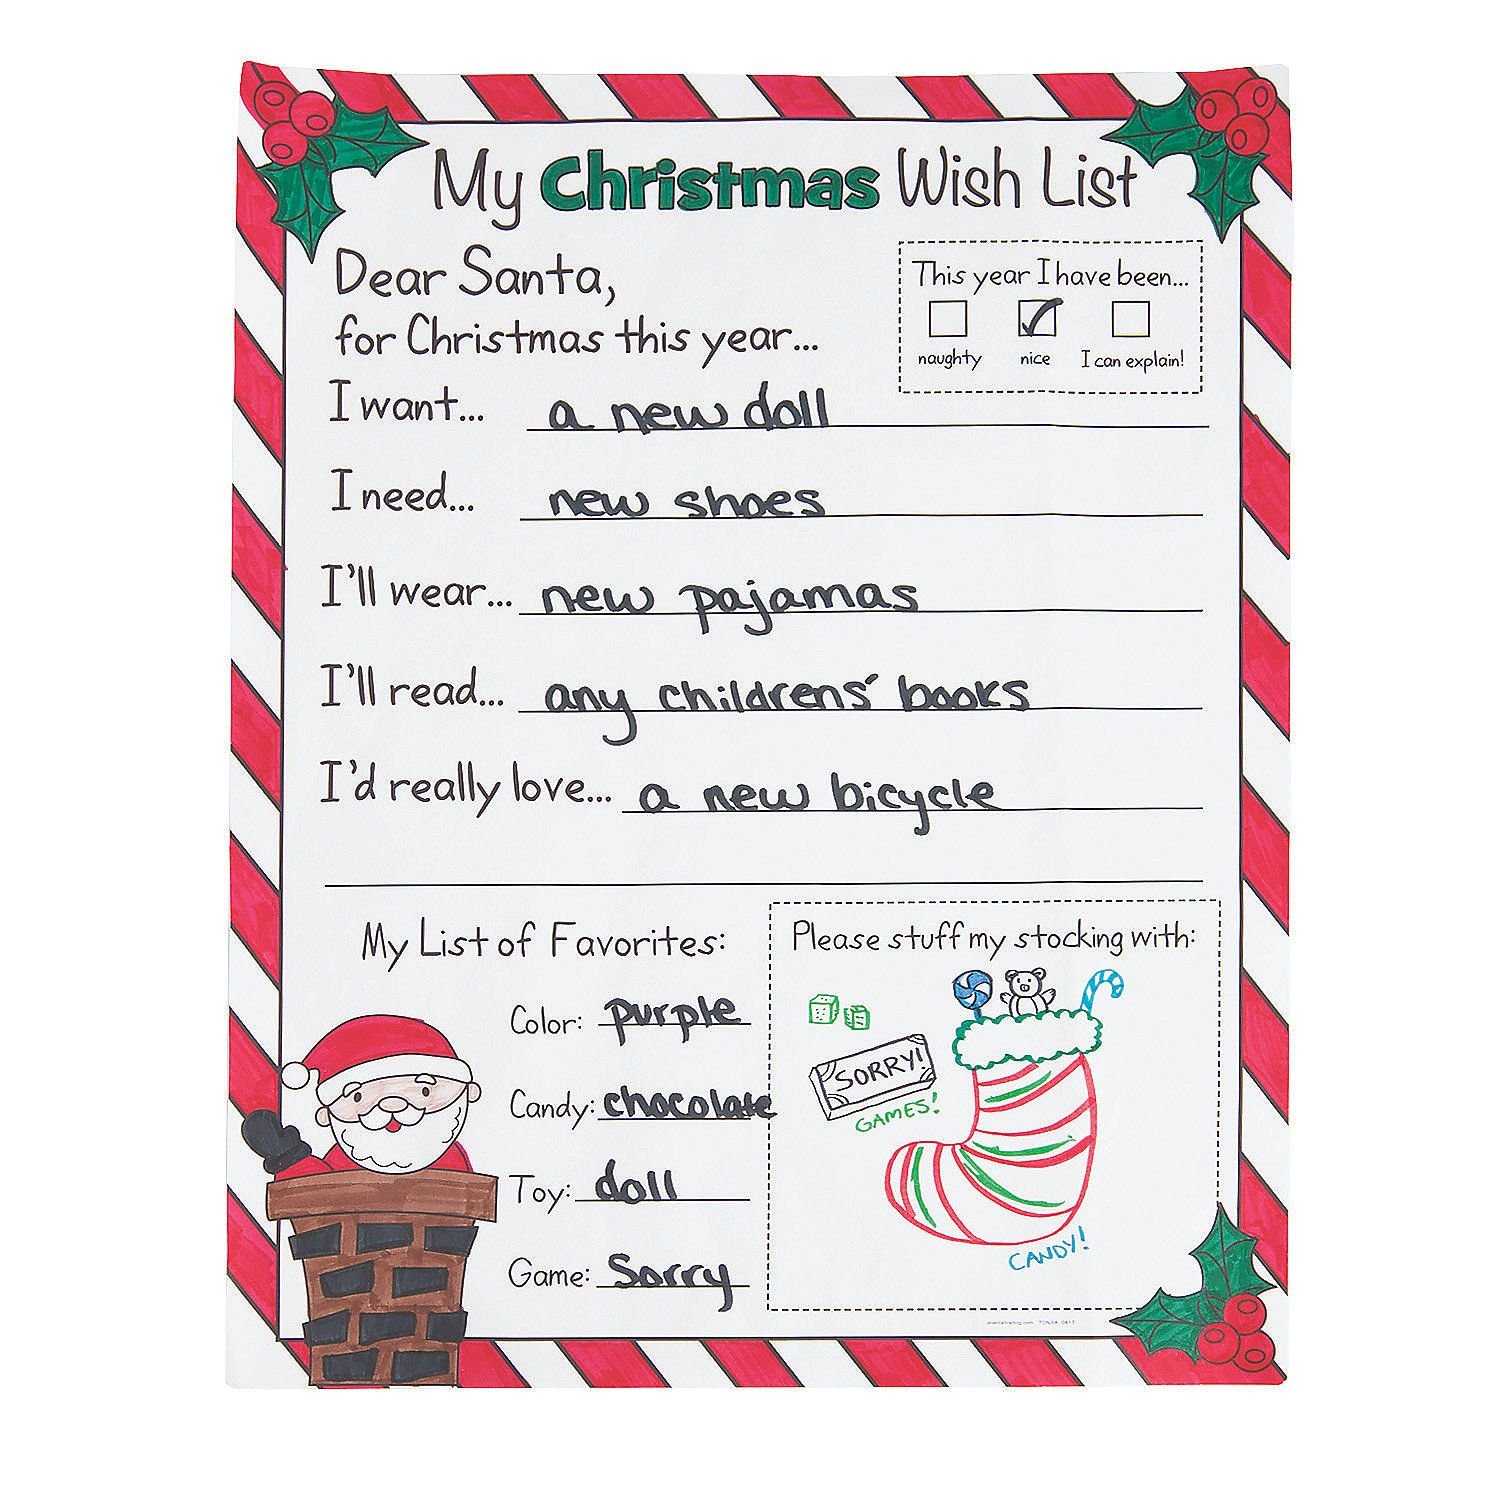 My Christmas Wish List
Dear Santa,
for Christmas this year...
This year I have been...
naughty nice I can explain!
I want... a new doll
I need... new shoes
I'll wear... new pajamas
I'll read... any childrens' books
I'd really love... a new bicycle
My List of Favorites:
Color: purple
Candy: chocolate
Toy: doll
Game: Sorry
Please stuff my stocking with:
SORRY!
GAMES!
CANDY!